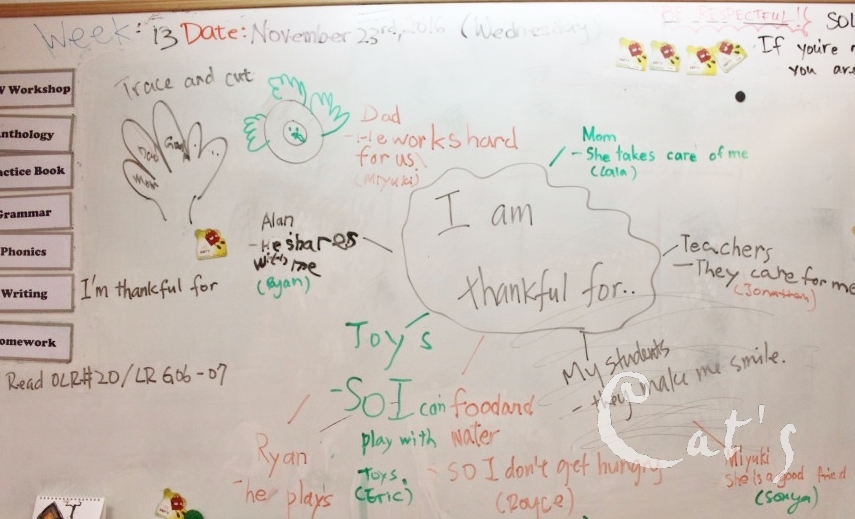 Week: 13 Date: November 23rd, 2016 (Wednesday)
BE RESPECTFUL!!
SOL
If you're
you are
W Workshop
nthology
actice Book
Grammar
Phonics
Writing
omework
Trace and cut
Mom
Dad
Dad
- He works hard
for us!
(Miyuki)
Mom
- She takes care of me
(Lala)
I am
thankful for..
Alan
- He shares
with me
(Ryan)
Teachers
- They care for me
(Jonathan)
I'm thankful for
Read OLR#20/LR G06-07
Toy's
- So I can
play with
Toys.
(Eric)
food and
water
- so I don't get hungry
(Royce)
My students
- they make me smile.
Ryan
he plays
Miyuki
she is a good friend
(Sonya)
Cat's